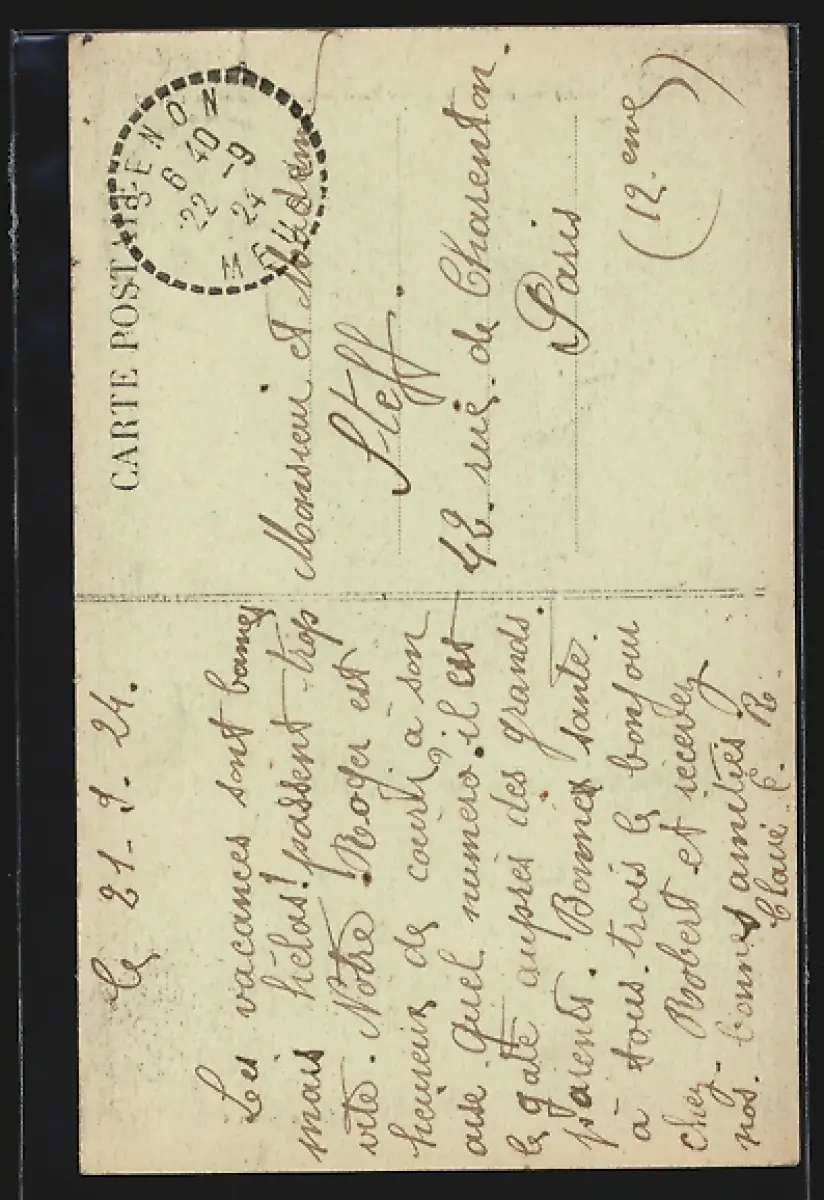 CARTE POSTALE
SENON
6 40
22 -9
24
Le 21-9-24.
Les vacances sont bonnes
mais hélas! passent trop
vite. Notre Roger est
heureux de courir à son
aise. Quel numéro, il est
le gaté auprès des grands.
parents. Bonnes santé.
à tous trois le bonjour
chez Robert et recevez
nos. bonnes amitiés
C. R.
Monsieur et Madame
Steff.
42. rue. de Charenton.
Paris
(12.eme)